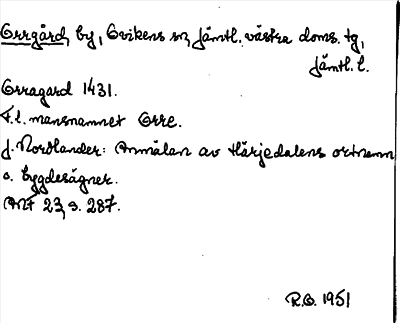 Orrgård, by, Ovikens sn, Jämtl. västra doms. tg,
Jämtl. l.
Orragard 1431.
T.l. mansnamnet Orre.
J. Nordlander: Anmälan av Härjedalens ortnamn
o. bygdesägner.
ANF 23, s. 287.
R.O. 1951